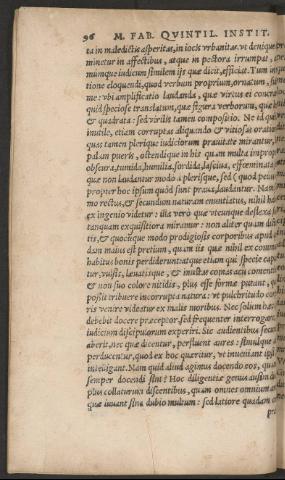 96 M. FAB. QVINTIL. INSTIT.
ta in maledictis asperitas, in iocis vrbanitas. vt denique
minetur in affectibus, atque in pectora irrumpat,
mumque iudicium similem ijs quæ dicit, efficiat. Tum in
tione eloquendi, quod verbum proprium, ornatum,
me: vbi amplificatio laudanda, quæ virtus ei contra
quid speciose translatum, quæ figura verborum, quæ
& quadrata: sed virilis tamen compositio. Ne id
inutile, etiam corruptas aliquando & vitiosas oratio
quas tamen plerique iudiciorum prauitate mirantur,
palam pueris, ostendique in his quàm multa impropria
obscura, tumida, humilia, sordida, lasciua, effœminata
quæ non laudantur modò à plerisque, sed (quod peius
propter hoc ipsum quòd sunt praua, laudantur. Nam
mo rectus, & secundùm naturam enuntiatus, nihil ha
ex ingenio videtur: illa verò quæ vtcunque deflexa
tanquam exquisitiora miramur: non aliter quàm di
tis, & quocunque modo prodigiosis corporibus apud
dam maius est pretium, quàm iis quæ nihil ex commu
habitus bonis perdiderunt: atque etiam qui specie cap
tur, vulsis, læuatisque, & inustas comas acu comentib
& non suo colore nitidis, plus esse formæ putant,
possit tribuere incorrupta natura: vt pulchritudo cor
ris venire videatur ex malis moribus. Nec solùm hæc
debebit docere præceptor, sed frequenter interrogare,
iudicium discipulorum experiri. Sic audientibus secu
aberit, nec quæ dicentur, perfluent aures: simulque
perducentur, quod ex hoc quæritur, vt inueniant ipsi
intelligant. Nam quid aliud agimus docendo eos, quàm
semper docendi sint? Hoc diligentiæ genus ausim di
plus collaturum discentibus, quàm omnes omnium
quæ iuuant sine dubio multum: sed latiore quadam